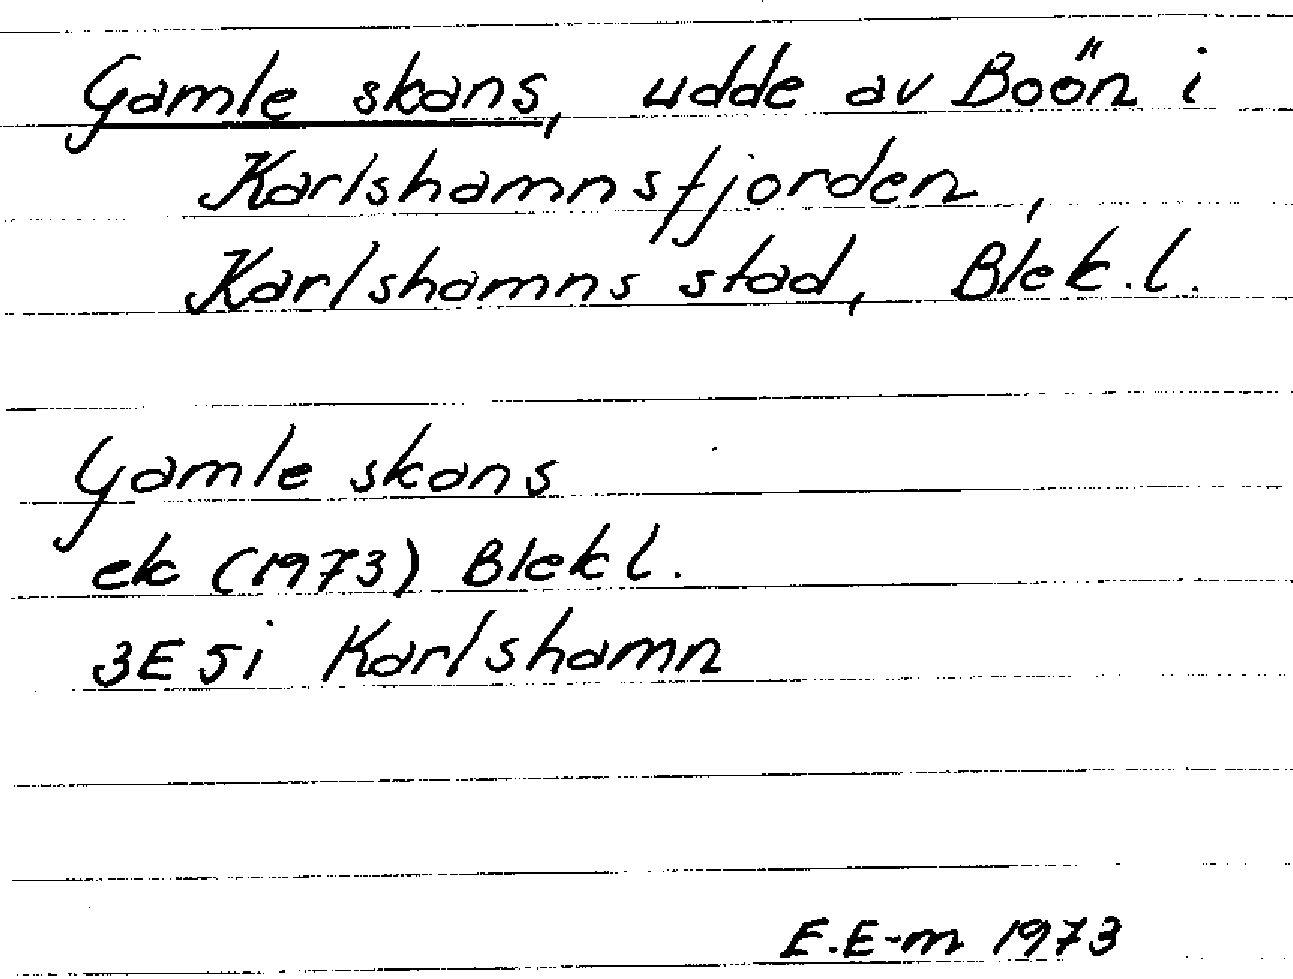 Gamle skans, udde av Boön i
Karlshamnsfjorden,
Karlshamns stad, Blek.l.
Gamle skans
ek (1973) Blekl.
3E5i Karlshamn
E.E-m 1973